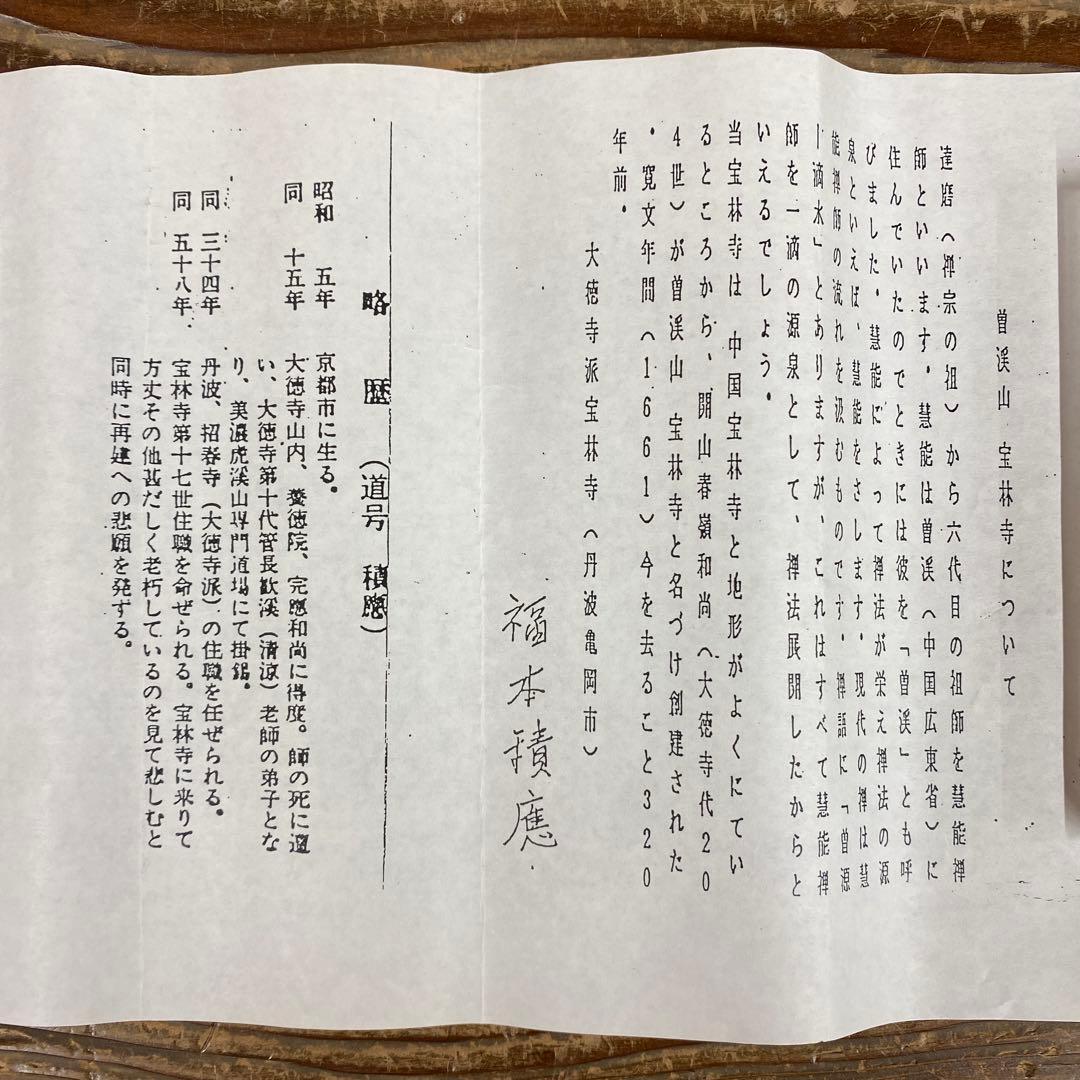 曽渓山　宝林寺について
達磨（禅宗の祖）から六代目の祖師を慧能禅
師といいます。慧能は曽渓（中国広東省）に
住んでいたのでときには彼を「曽渓」とも呼
びました。慧能によって禅法が栄え禅法の源
泉といえば、慧能をさします。現代の禅は慧
能禅師の流れを汲むものです。禅語に「曽源
一滴水」とありますが、これはすべて慧能禅
師を一滴の源泉として、禅法展開したからと
いえるでしょう。
当宝林寺は　中国宝林寺と地形がよくにてい
るところから、開山春嶺和尚（大徳寺代２０
４世）が曽渓山　宝林寺と名づけ創建された
。寛文年間（１６６１）今を去ること３２０
年前。
大徳寺派宝林寺（丹波亀岡市）
福本積應
略　歴　（道号　積應）
昭和　五年　京都市に生る。
同　十五年　大徳寺山内、養徳院、完應和尚に得度。師の死に遭
い、大徳寺第十代管長歓渓（清涼）老師の弟子とな
り、美濃虎渓山専門道場にて掛錫。
同　三十四年　丹波、招春寺（大徳寺派）の住職を任ぜられる。
同　五十八年　宝林寺第十七世住職を命ぜられる。宝林寺に来りて
方丈その他甚だしく老朽しているのを見て悲しむと
同時に再建への悲願を発ずる。